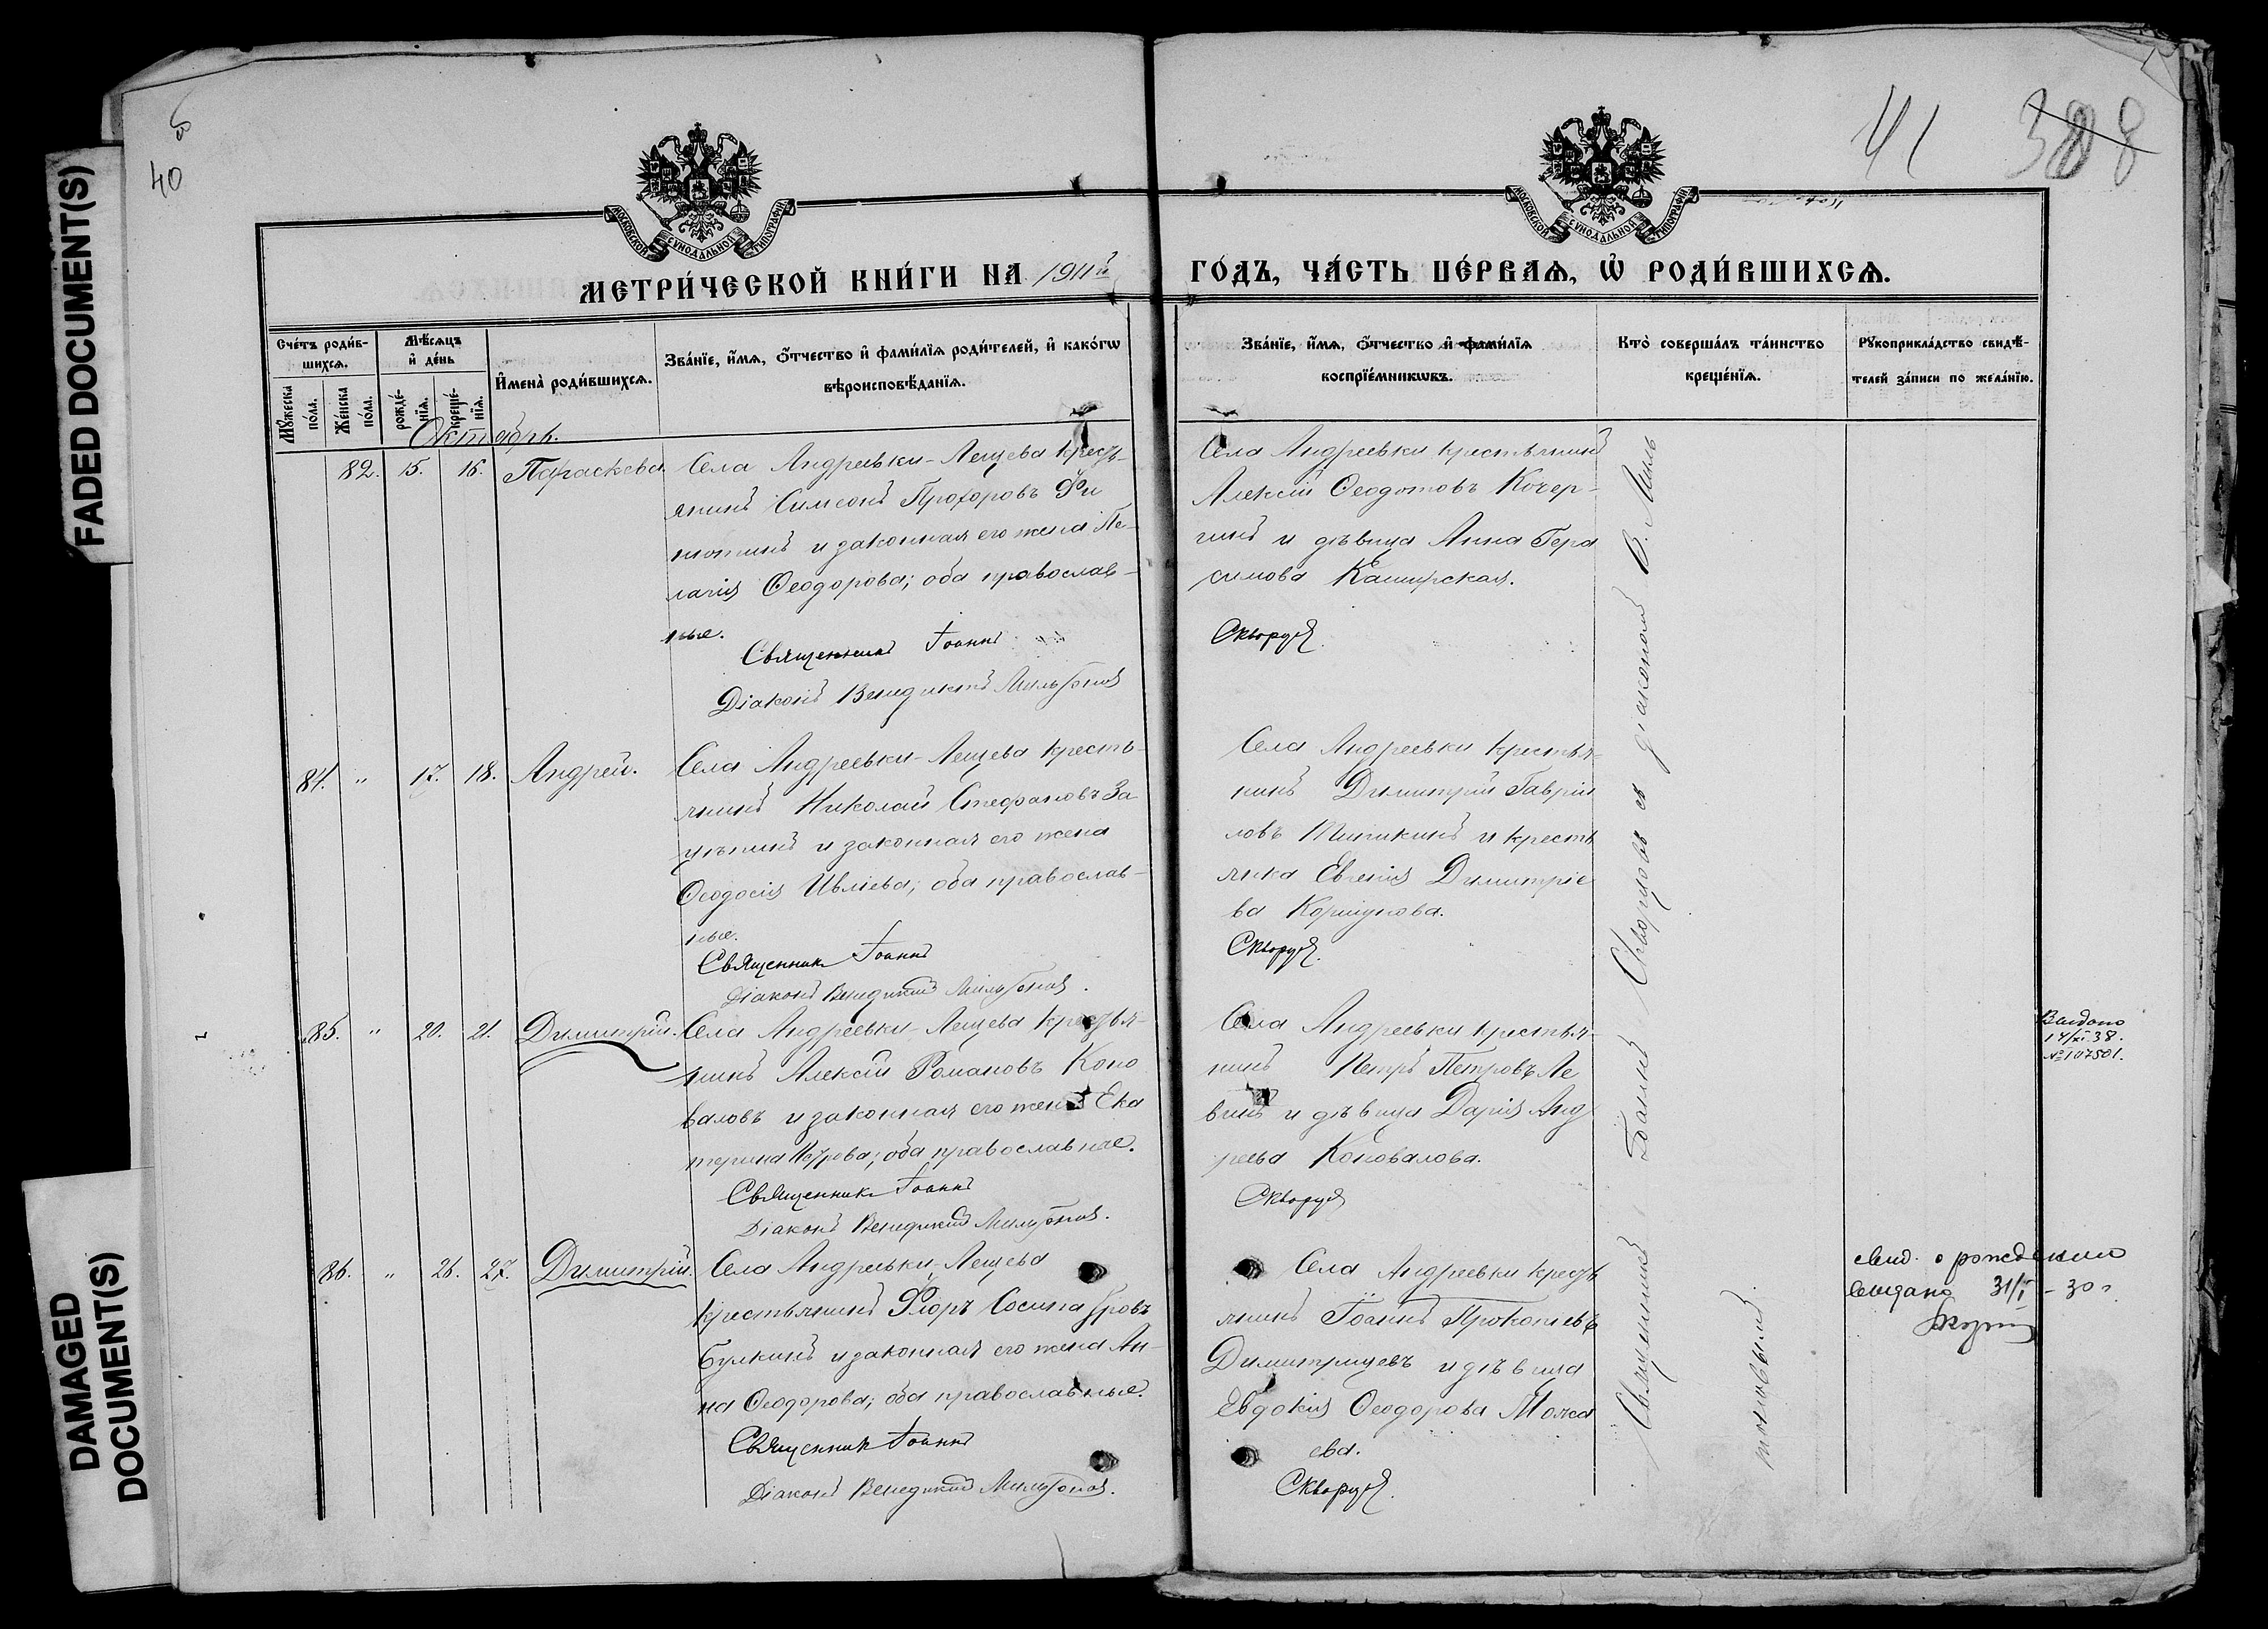 FADED DOCUMENT(S)
DAMAGED
DOCUMENT(S)
40
41 388
МОСКОВСКОЙ СѴНОДАЛЬНОЙ ТИПОГРАФІИ
МОСКОВСКОЙ СѴНОДАЛЬНОЙ ТИПОГРАФІИ
МЕТРИ́ЧЕСКОЙ КНИ́ГИ НА 1911й
ГО́ДЪ, ЧА́СТЬ ПЕ́РВАѦ, Ѡ҆ РОДИ́ВШИХСѦ.
Сче́тъ роди́в-
шихсѧ.
Мꙋ́жеска
по́ла.
Же́нска
по́ла.
Мѣ́сѧцъ
и҆ де́нь
рожде́-
нїѧ.
креще́-
нїѧ.
И҆мена̀ роди́вшихсѧ.
Зва́нїе, и҆́мѧ, ѻ҆́тчество и҆ фами́лїѧ роди́телей, и҆ како́гѡ
вѣроисповѣ́данїѧ.
Зва́нїе, и҆́мѧ, ѻ҆́тчество и҆ фами́лїѧ
воспрїе́мникѡвъ.
Кто̀ соверша́лъ та́инство
креще́нїѧ.
Рꙋкоприкла́дство свидѣ́-
телей за́писи по жела́нїю.
Октябрь.
82. 15. 16. Параскева
Села Андреевки-Лещева кресть-
янинъ Симеонъ Прохоровъ Фи
и законная его жена Пе-
лагія Ѳеодорова; оба православ-
ные.
Священникъ Іоаннъ
Діаконъ Венедиктъ Мильтоновъ
Села Андреевки крестьянинъ
Алексій Ѳеодотовъ Кочер-
гинъ и дѣвица Анна Гера
симова Каширская.
Скворцовъ
84. " 17. 18. Андрей.
Села Андреевки-Лещева кресть-
янинъ Николай Стефановъ За
цѣпинъ и законная его жена
Ѳеодосія Ивліева; оба православ-
ные.
Священникъ Іоаннъ
Діаконъ Венедиктъ Мильтоновъ.
Села Андреевки крестья-
нинъ Димитрій Гаврии
ловъ и кресть
янка Евгенія Димитріе
ва Коршунова.
Скворцовъ
85. " 20. 21. Димитрій.
Села Андреевки-Лещева крестья-
нинъ Алексій Романовъ Коно
валовъ и законная его жена Ека
терина Петрова; оба православные.
Священникъ Іоаннъ
Діаконъ Венедиктъ Мильтоновъ.
Села Андреевки крестья-
нинъ Петръ Петровъ Ле
винъ и дѣвица Дарія Анд
реева Коновалова.
Скворцовъ
Выдано
14/XI 38.
№107501.
86. " 26. 27. Димитрій.
Села Андреевки-Лещева
крестьянинъ Флоръ Сосипатровъ
Булкинъ и законная его жена Ан-
на Ѳеодорова; оба православные.
Священникъ Іоаннъ
Діаконъ Венедиктъ Мильтоновъ.
Села Андреевки кресть
янинъ Іоаннъ Прокопіевъ
Димитрищевъ и дѣвица
Евдокія Ѳеодорова Мокса
ева.
Скворцовъ
Священникъ Іоаннъ Скворцовъ съ діакономъ В. Миль
тоновымъ.
свид. о рождении
выдано 31/I - 30 г